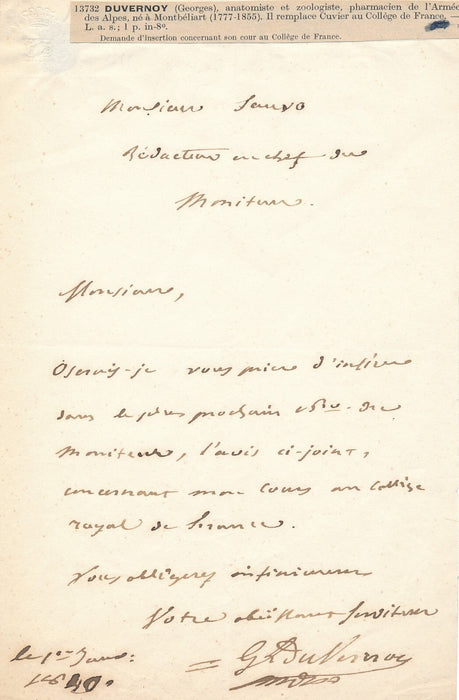 13732 DUVERNOY (Georges), anatomiste et zoologiste, pharmacien de l'Armée
des Alpes, né à Montbéliart (1777-1855). Il remplace Cuvier au Collège de France. —
L. a. s.; 1 p. in-8º.
Demande d'insertion concernant son cour au Collège de France.
Monsieur Sauvo
Rédacteur en chef du
Moniteur.
Monsieur,
Oserais-je vous prier d'insérer
dans le plus prochain nº du
Moniteur, l'avis ci-joint,
concernant mon Cours au Collège
royal de France.
Vous obligerez infiniment
Votre obéissant serviteur
G L DuVernoy
le 1er Janv:
1840.